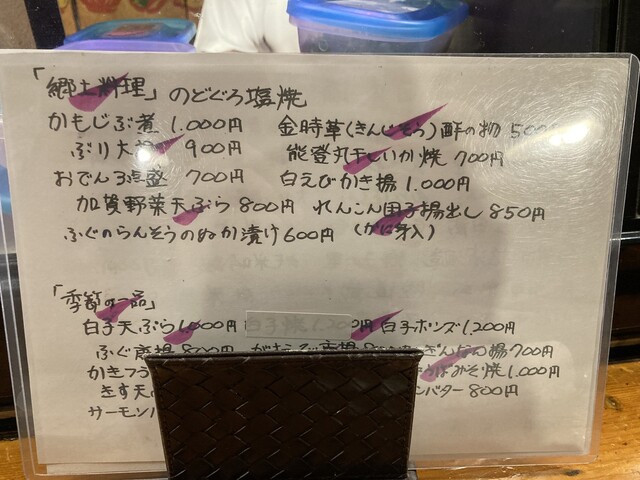 「郷土料理」のどぐろ塩焼
かもじぶ煮 1.000円 金時草(きんじそう)酢の物 500
ぶり大 900円 能登丸干しいか焼 700円
おでん3点盛 700円 白えびかき揚 1.000円
加賀野菜天ぷら 800円 れんこん団子揚出し 850円
ふぐのらんそうのぬか漬け 600円 (かに身入)
「季節の一品」
白子天ぷら 1.000円 白子焼 1.200円 白子ポンズ 1.200円
ふぐ唐揚 800円 唐揚 ぎんなん揚 700円
かきフラ みそ焼 1.000円
きす天 バター 800円
サーモン